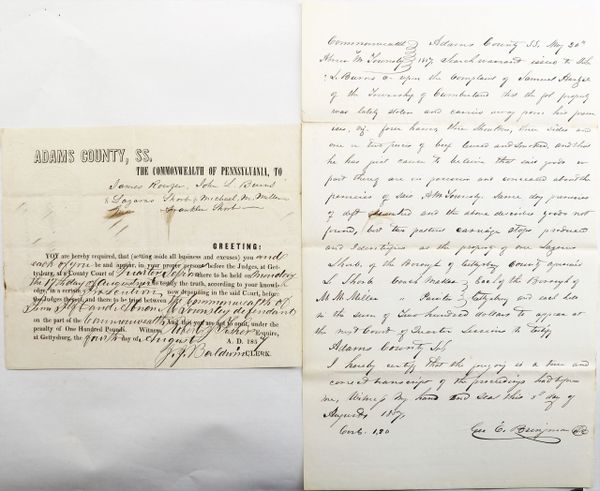 ADAMS COUNTY, SS.
THE COMMONWEALTH OF PENNSYLVANIA, TO
James Rouzer, John L Burns
& Lazarus Shorb & Michael M. Miller
Franklin Shorb
GREETING:
YOU are hereby required, that (setting aside all business and excuses) you and
each of you be and appear, in your proper persons before the Judges, at Get-
tysburg, at a County Court of Quarter Sessions there to be held on Monday
the 17th day of August to testify the truth, according to your knowl-
edge, in a certain now depending in the said Court, before
the Judges thereof, and there to be tried between The Commonwealth of
Townsly defendants
on the part of the Commonwealth and this you are not to omit, under the
penalty of One Hundred Pounds. Witness Robert J Fisher Esquire,
at Gettysburg, the fourth day of August A. D. 1857
J. J. Baldwin CLERK.
Commonwealth Adams County SS. May 30th
Abner M Townsly 1857. Search warrant issued to John
L. Burns C upon the Complaint of Samuel
of the Township of Cumberland that the fol property
was lately stolen and carried away from his prem
ises, viz. four hams, three Shoulders, three sides and
one or two pieces of beef and smoked, and that
he has just cause to believe that said goods or
part thereof are in possession and concealed about the
premises of said AM Townsly. Same day premises
of deft searched and the above described goods not
found, but two pattern carriage steps produced
and Identified as the property of one Lazarus
Shorb, of the Borough of Gettysburg County aforesaid
L Shorb Coach maker Each of the Borough of
M M Miller " Painter Gettysburg and each held
in the sum of Two hundred dollars to appear at
the next Court of Quarter Sessions to testify
Adams County SS
I hereby certify that the foregoing is a true and
correct transcript of the proceedings had before
me, Witness My hand and Seal this 3d day of
August 1857
Costs. 1.20 Geo E. Bringman